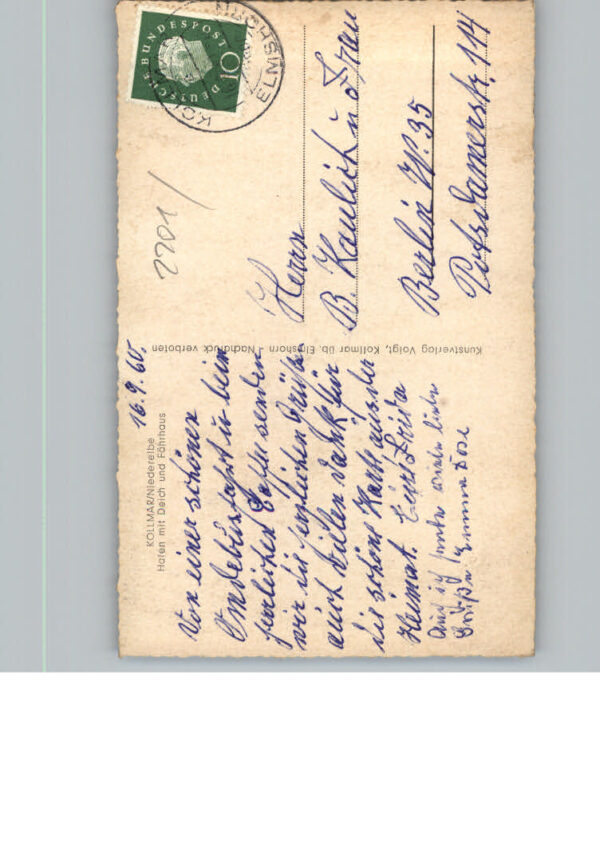 KOLLMAR/Niederelbe
Hafen mit Deich und Fährhaus
16.9.60.
Von einer schönen
u beim
herlichen senden
wir die herzlichen Grüße
auch vielen Dank für
die schöne Karte aus der
Heimat. Eure Frieda
Auch ich sende viele liebe
Grüße Emma
Kunstverlag Voigt, Kollmar üb. Elmshorn - Nachdruck verboten
DEUTSCHE BUNDESPOST
10
ELMSH
2201/
Herrn
B. Kaulich u Frau
Berlin W. 35
Potsdamerstr. 114